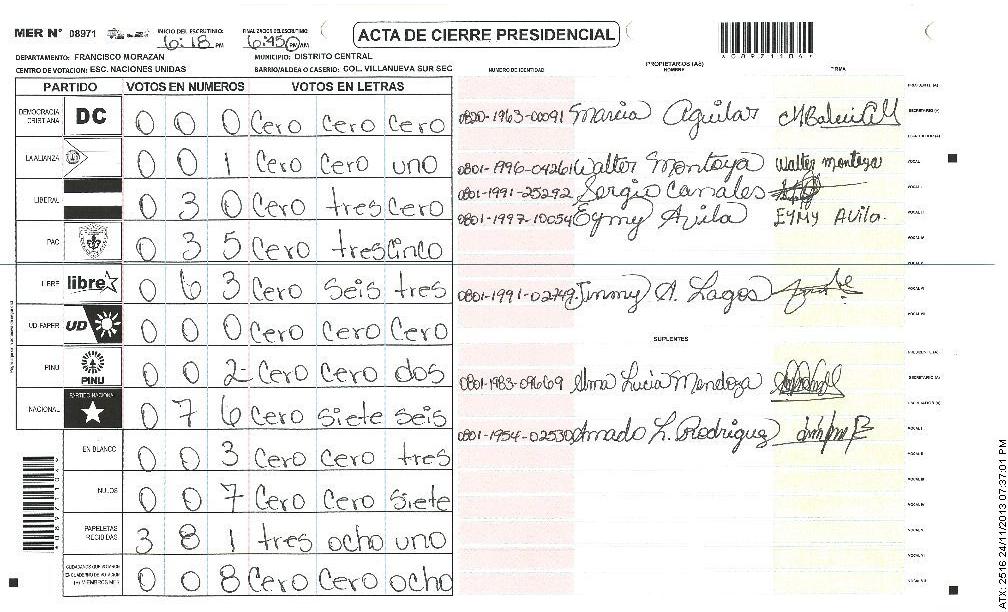 MER N° 08971 INICIO DEL ESCRUTINIO: 6:18 PM FINALIZACION DEL ESCRUTINIO: 6:45 PM AM
ACTA DE CIERRE PRESIDENCIAL
DEPARTAMENTO: FRANCISCO MORAZAN MUNICIPIO: DISTRITO CENTRAL
CENTRO DE VOTACION: ESC. NACIONES UNIDAS BARRIO/ALDEA O CASERIO: COL. VILLANUEVA SUR SEC
PARTIDO VOTOS EN NUMEROS VOTOS EN LETRAS
DEMOCRACIA CRISTIANA DC 0 0 0 Cero Cero Cero
LA ALIANZA 0 0 1 Cero Cero uno
LIBERAL 0 3 0 Cero tres Cero
PAC 0 3 5 Cero tres Cinco
LIBRE libre 0 6 3 Cero Seis tres
UD-FAPER UD 0 0 0 Cero Cero Cero
PINU PINU 0 0 2 Cero Cero dos
NACIONAL PARTIDO NACIONAL 0 7 6 Cero siete seis
EN BLANCO 0 0 3 Cero Cero tres
NULOS 0 0 7 Cero Cero Siete
PAPELETAS RECIBIDAS 3 8 1 tres ocho uno
0 0 8 Cero Cero ocho
PROPIETARIOS (AS)
NUMERO DE IDENTIDAD NOMBRE FIRMA
0820-1963-00091 Marcia Aguilar
0801-1996-04261 Walter Montoya Walter Montoya
0801-1991-25292 Sergio Canales
0801-1997-10054 Eymy Avila EYMY AVila.
0801-1991-02749 Jimmy A. Lagos
SUPLENTES
0801-1983-09669 Alma Lucia Mendoza
0801-1954-02530 Amado L. Rodriguez
ATX: 2516 24/11/2013 07:37:01 PM